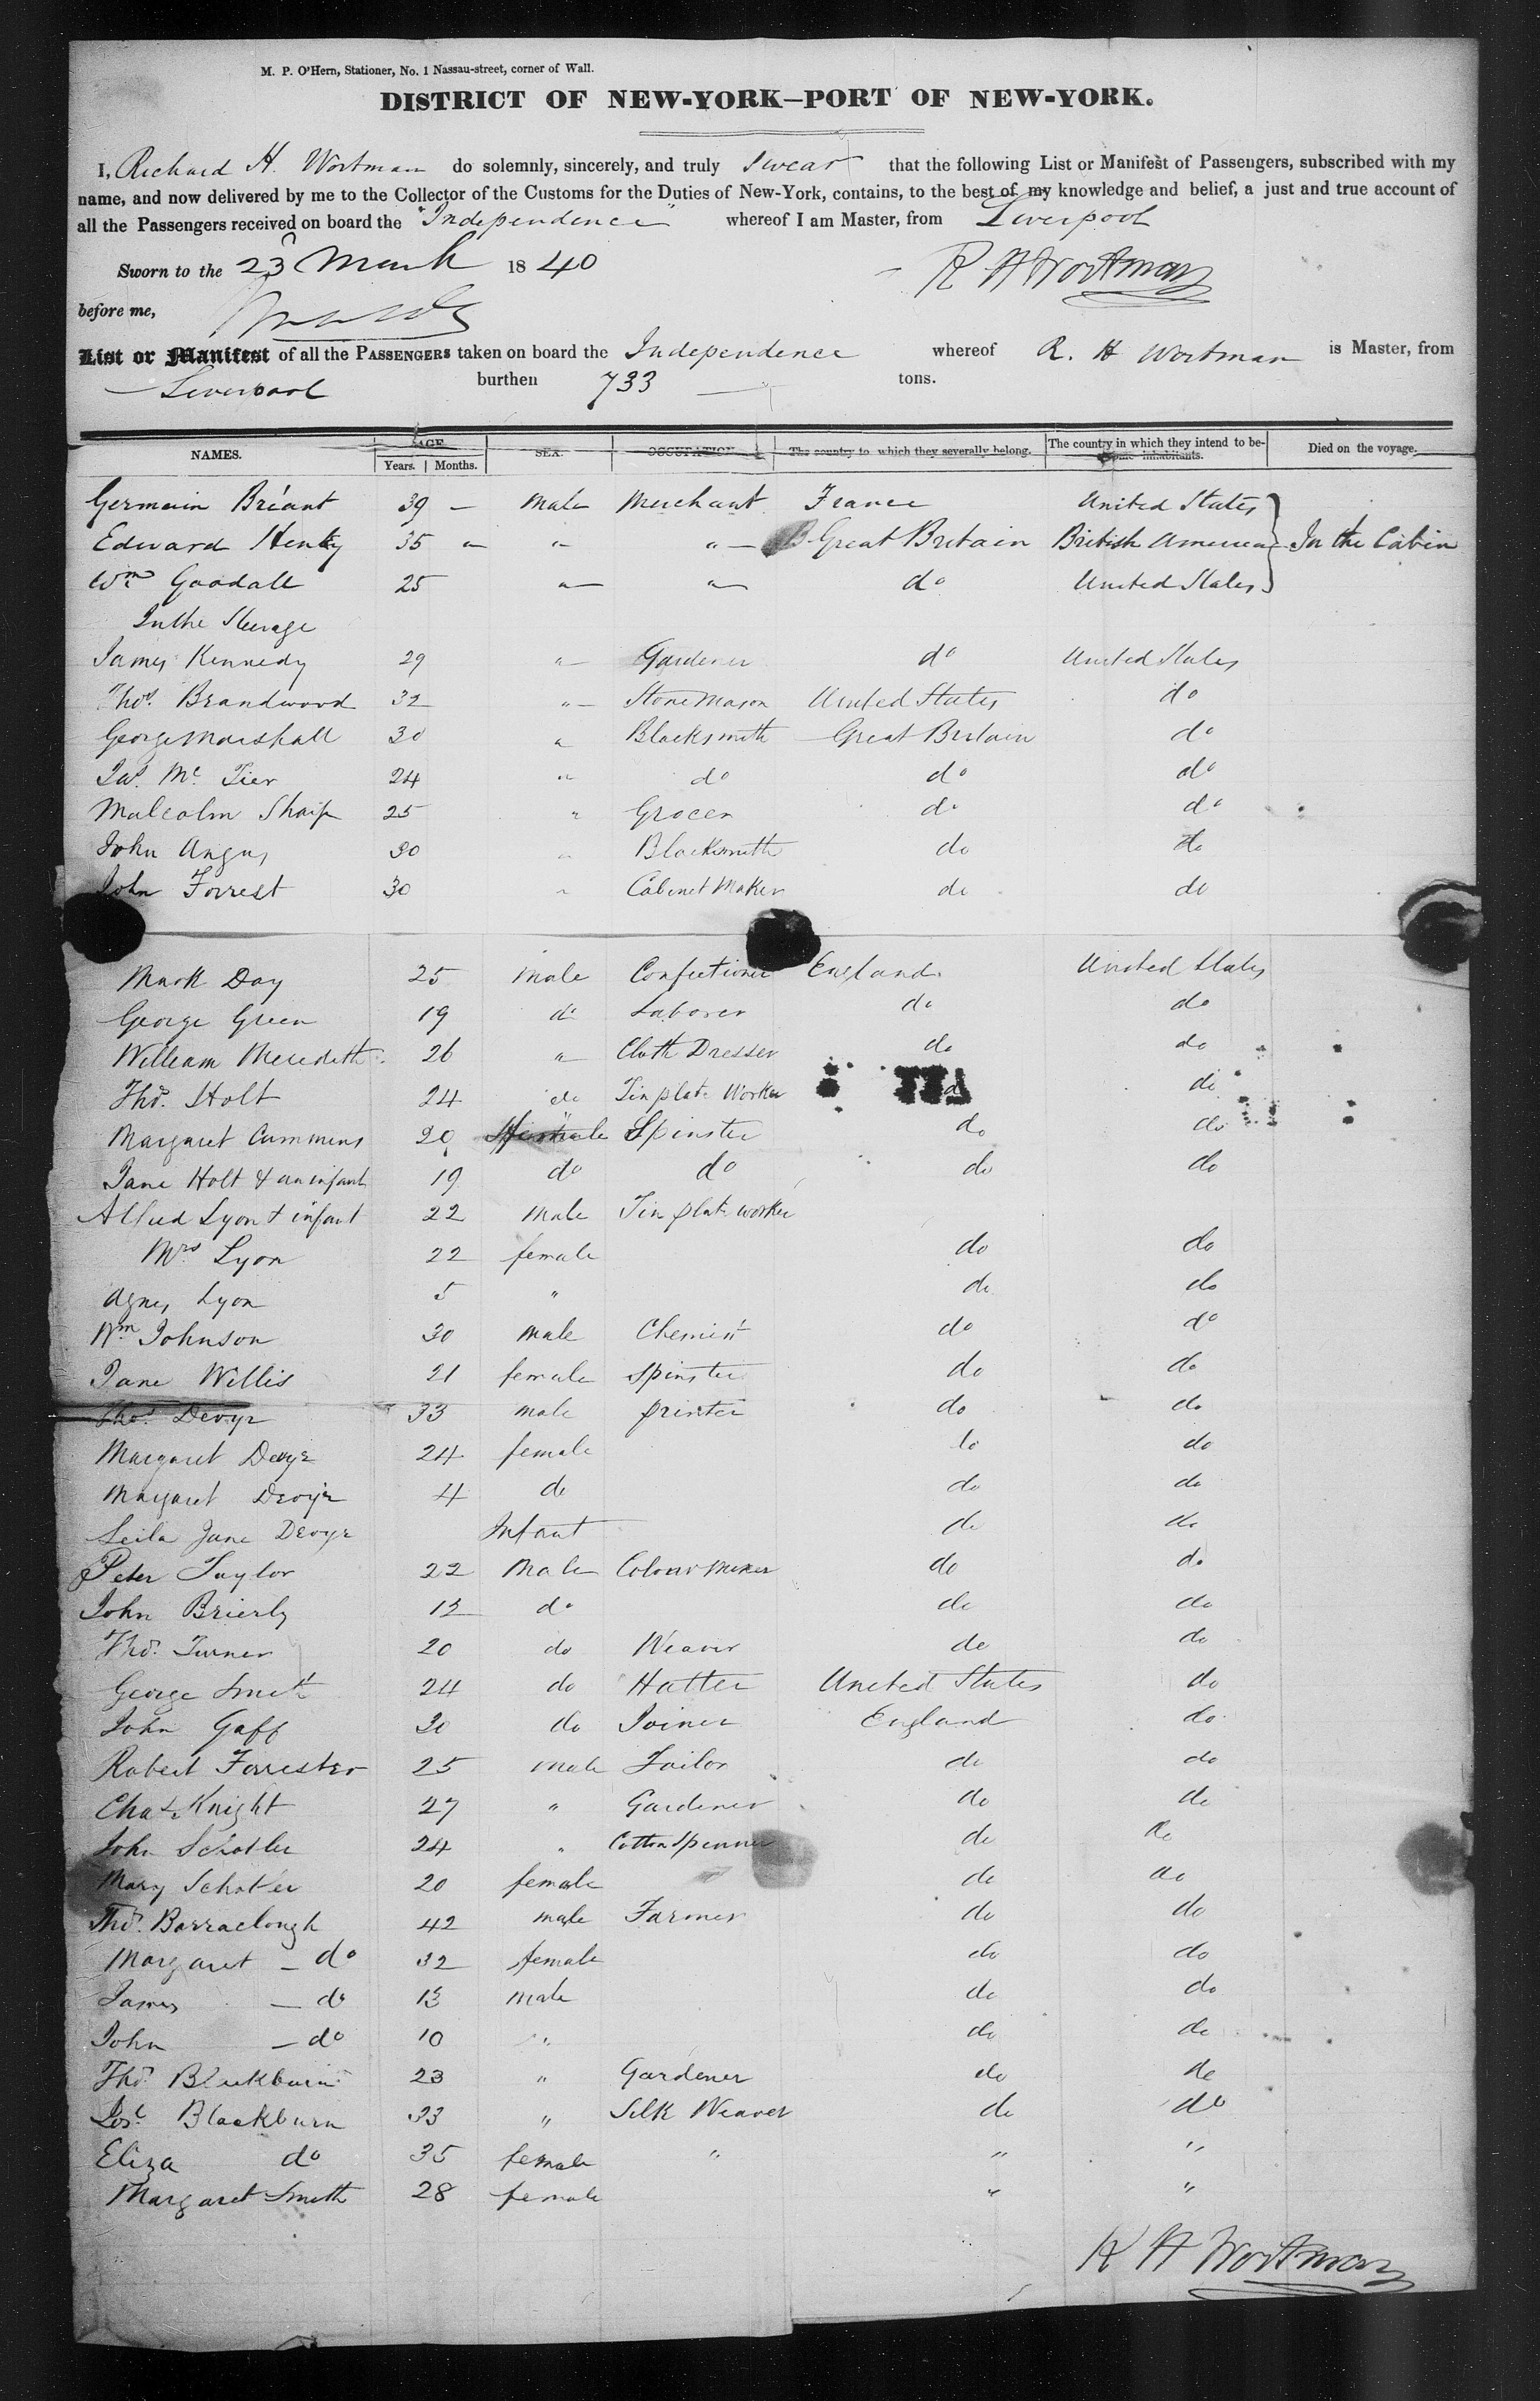 M. P. O'Hern, Stationer, No. 1 Nassau-street, corner of Wall.
DISTRICT OF NEW-YORK—PORT OF NEW-YORK.
I, Richard H. Wortman do solemnly, sincerely, and truly swear that the following List or Manifest of Passengers, subscribed with my
name, and now delivered by me to the Collector of the Customs for the Duties of New-York, contains, to the best of my knowledge and belief, a just and true account of
all the Passengers received on board the "Independence" whereof I am Master, from Liverpool
Sworn to the 23 March 1840 R H Wortman
before me,
List or Manifest of all the PASSENGERS taken on board the Independence whereof R. H Wortman is Master, from
Liverpool burthen 733 tons.
NAMES. AGE. Years. Months. SEX. OCCUPATION. The country to which they severally belong. The country in which they intend to become inhabitants. Died on the voyage.
Germain Briant 39 — male Merchant France United States
Edward Henty 35 " " " Great Britain British America In the Cabin
Wm Goodall 25 " " do United States
In the Steerage
James Kennedy 29 " Gardener do United States
Thos. Brandwood 32 " Stone Mason United States do
George Marshall 30 " Blacksmith Great Britain do
Jas. Mc Tier 24 " do do do
Malcolm Sharp 25 " Grocer do do
John Angus 30 " Blacksmith do do
John Forrest 30 " Cabinet Maker do do
Mark Day 25 male Confectioner England United States
George Green 19 do Laborer do do
William Meredith 26 " Cloth Dresser do do
Thos. Holt 24 do Tin plate Worker do do
Margaret Cummins 20 female Spinster do do
Jane Holt & an infant 19 do do do do
Alfred Lyon & infant 22 male Tin plate worker
Mrs Lyon 22 female do do
Agnes Lyon 5 " do do
Wm Johnson 30 male Chemist do do
Jane Willis 21 female Spinster do do
Thos. Devyr 33 male printer do do
Margaret Devyr 24 female do do
Margaret Devyr 4 do do do
Leila Jane Devyr Infant do do
Peter Taylor 22 Male Colour Mixer do do
John Brierly 12 do do do
Thos. Turner 20 do Weaver do do
George Smith 24 do Hatter United States do
John Gaff 30 do Joiner England do
Robert Forrester 25 male Tailor do do
Chas. Knight 27 " Gardener do do
John 24 " Cotton Spinner do do
Mary 20 female do do
Thos. Barraclough 42 male Farmer do do
Margaret — do 32 female do do
James — do 13 male do do
John — do 10 " do do
Thos. Blackburn 23 " Gardener do do
Jos. Blackburn 33 " Silk Weaver do do
Eliza do 35 female " " "
Margaret Smith 28 female " "
R H Wortman